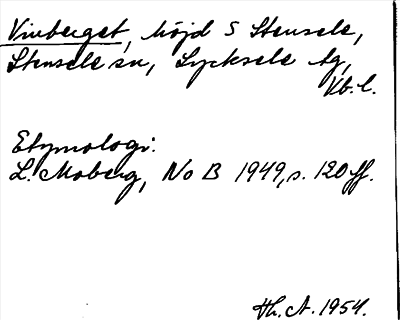 Vinberget, höjd S Stensele,
Stensele sn, Lycksele lg,
Vb. l.
Etymologi:
L. Moberg, No B 1949, s. 120 ff.
Th. A. 1954.